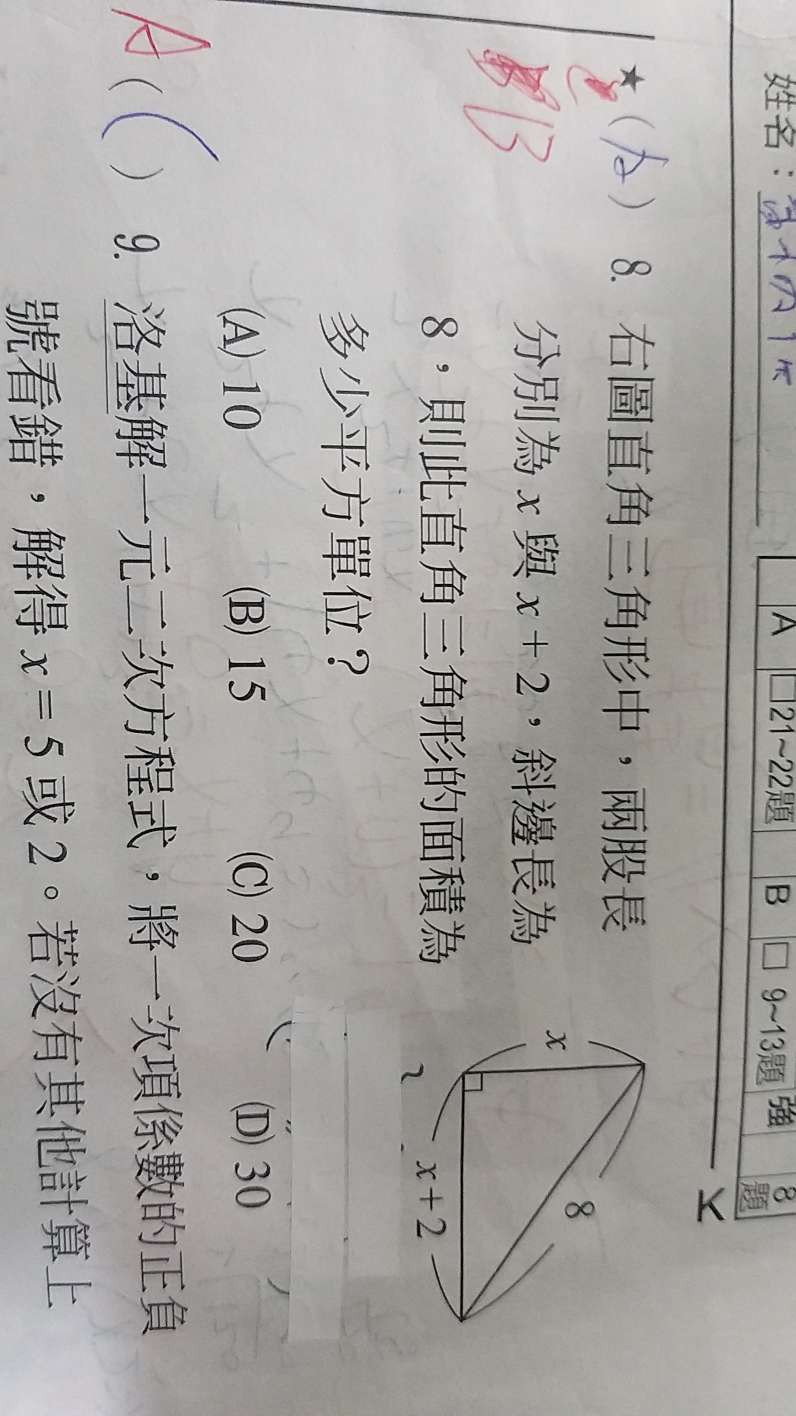 姓名：
A □21~22題 B □ 9~13題 強 8題
K
★( ) 8. 右圖直角三角形中，兩股長
分別為 x 與 x + 2，斜邊長為
8，則此直角三角形的面積為
多少平方單位？
(A) 10 (B) 15 (C) 20 (D) 30
x
8
x+2
B
A ( ) 9. 洛基解一元二次方程式，將一次項係數的正負
號看錯，解得 x = 5 或 2。若沒有其他計算上